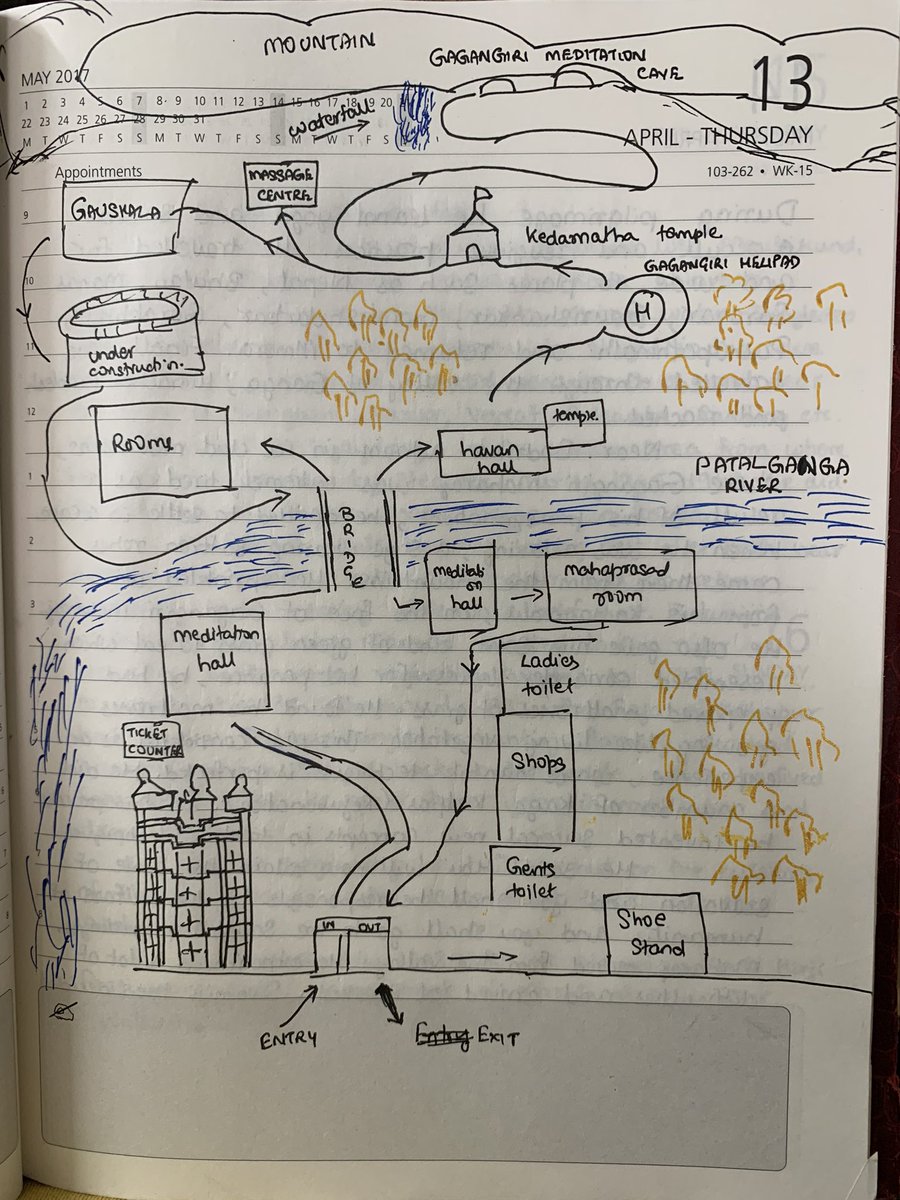 MOUNTAIN
GAGANGIRI MEDITATION
CAVE
MAY 2017
13
1 2 3 4 5 6 7 8 9 10 11 12 13 14 15 16 17 18 19 20
22 23 24 25 26 27 28 29 30 31
M T W T F S S M T W T F S S M T W T F S
waterfall
APRIL - THURSDAY
Appointments
103-262 • WK-15
MASSAGE
CENTRE
GAUSHALA
9
Kedarnatha temple
GAGANGIRI HELIPAD
10
H
under
construction.
11
12
ROOMS
temple.
havan
hall
1
PATALGANGA
RIVER
BRIDGe
2
meditati
on
hall
mahaprasad
room
3
meditation
hall
Ladies
toilet
TICKET
COUNTER
Shops
Gents
toilet
IN OUT
Shoe
Stand
ENTRY
Entry EXIT